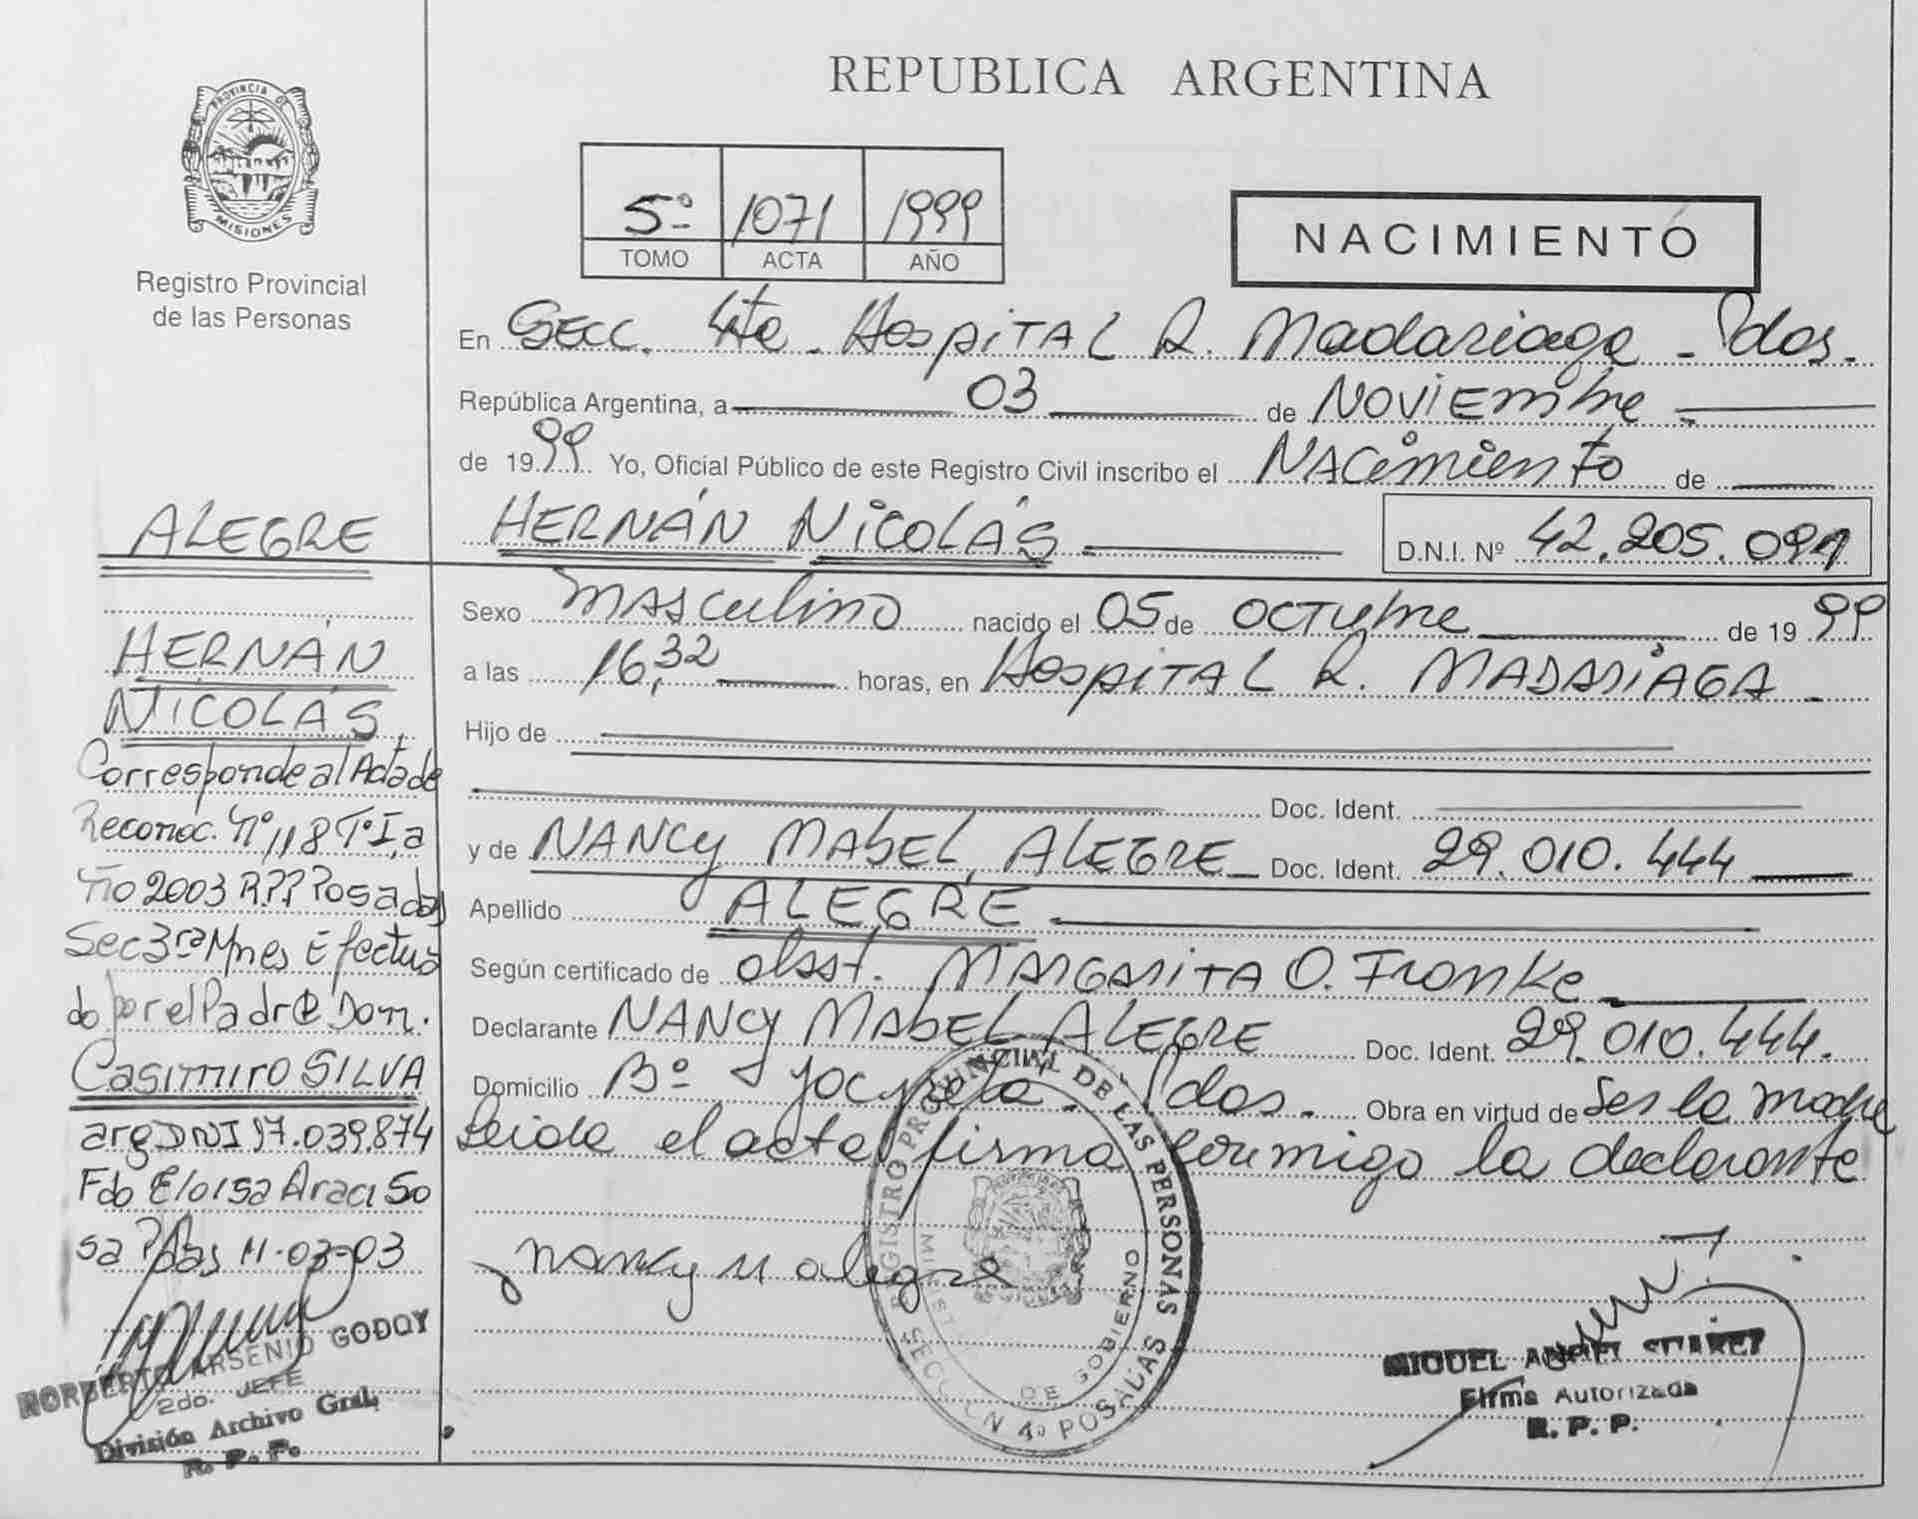 REPUBLICA ARGENTINA
PROVINCIA DE
MISIONES
Registro Provincial
de las Personas
5º 1071 1999
TOMO ACTA AÑO
NACIMIENTO
En Secc. 4ta - Hospital R. Madariaga - Pdas.
República Argentina, a 03 de Noviembre
de 1999 Yo, Oficial Público de este Registro Civil inscribo el Nacimiento de
HERNÁN NICOLÁS D.N.I. Nº 42.205.091
Sexo Masculino nacido el 05 de Octubre de 1999
a las 16,32 horas, en Hospital R. MADARIAGA
Hijo de
Doc. Ident.
y de NANCY MABEL ALEGRE Doc. Ident. 29.010.444
Apellido ALEGRE
Según certificado de obst. MARGARITA O. Fronke
Declarante NANCY MABEL ALEGRE Doc. Ident. 29.010.444.
Domicilio Bº Yacyreta. Pdas. Obra en virtud de Ser la madre
Leida el acta firma conmigo la declarante
nancy m alegre
REGISTRO PROVINCIAL DE LAS PERSONAS
DE GOBIERNO
SECCION 4ª POSADAS
MIGUEL ANGEL SUAREZ
Firma Autorizada
R. P. P.
ALEGRE
HERNÁN
NICOLÁS
Corresponde al Acta de
Reconoc. Nº 118 Tº I, a
ño 2003 R.P.P Posadas
Sec 3ra Mnes Efectua
do por el Padre Dom.
CASIMIRO SILVA
arg DNI 17.039.874
Fdo Eloisa Araci So
sa Pdas 11-03-03
NORBERTO ARSENIO GODOY
2do. JEFE
División Archivo Gral.
R. P. P.